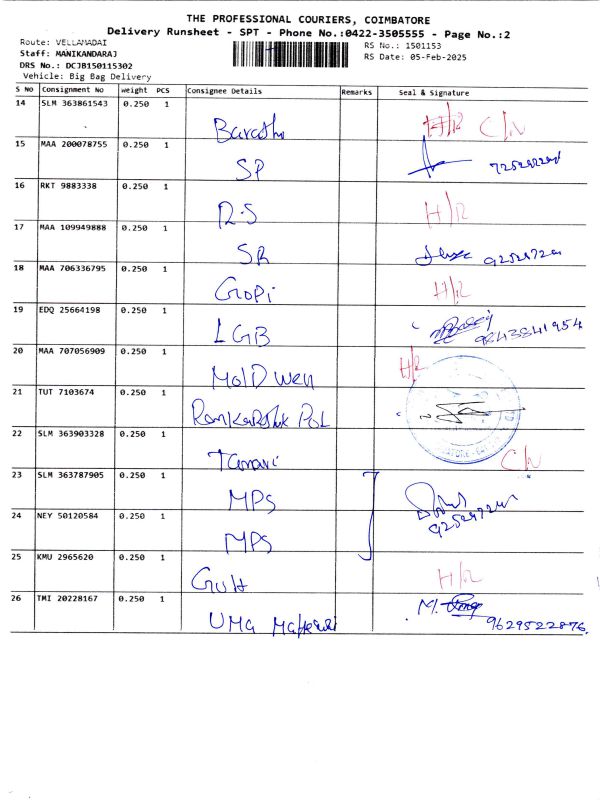 THE PROFESSIONAL COURIERS, COIMBATORE
Delivery Runsheet - SPT - Phone No.:0422-3505555 - Page No.:2
Route: VELLAMADAI
RS No.: 1501153
Staff: MANIKANDARAJ
RS Date: 05-Feb-2025
DRS No.: DCJB150115302
Vehicle: Big Bag Delivery
S No Consignment No weight PCS Consignee Details Remarks Seal & Signature
14 SLM 363861543 0.250 1 H/R C/N
15 MAA 200078755 0.250 1 SP
16 RKT 9883338 0.250 1 R.S H/R
17 MAA 109949888 0.250 1 SR
18 MAA 706336795 0.250 1 Gopi H/R
19 EDQ 25664198 0.250 1 LGB 9843841954
20 MAA 707056909 0.250 1 Mold wen H/R
21 TUT 7103674 0.250 1
22 SLM 363903328 0.250 1 C/N
23 SLM 363787905 0.250 1 MPS
24 NEY 50120584 0.250 1 MPS
25 KMU 2965620 0.250 1 H/R
26 TMI 20228167 0.250 1 UMA 9629522876